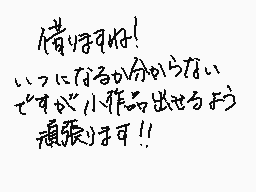 借りますね!
いつになるか分からない
ですが小作品出せるよう
頑張ります!!